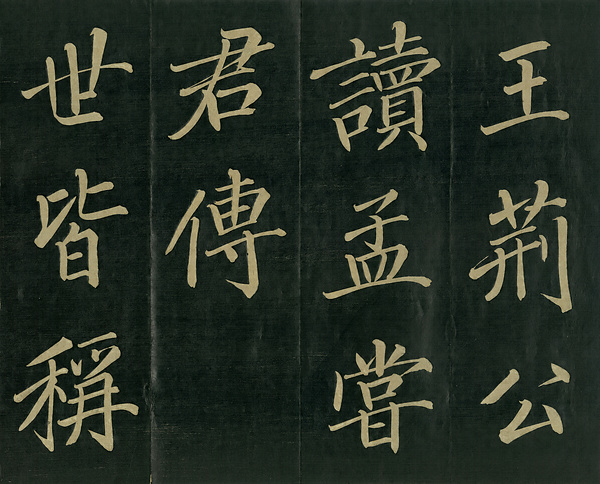 王荆公
讀孟嘗
君傳
世皆稱